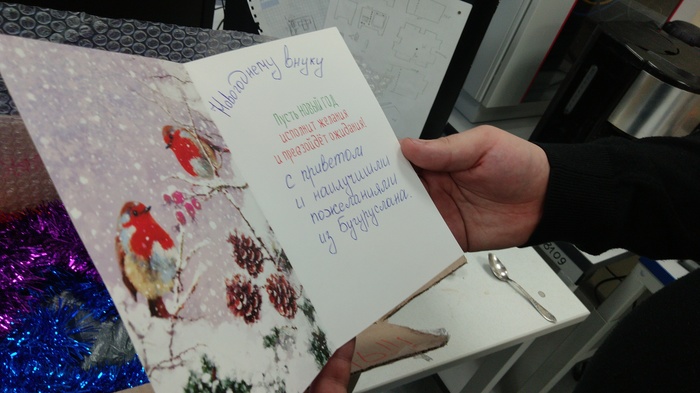 Новогоднему внуку
Пусть НОВЫЙ ГОД
исполнит желания
и превзойдёт ожидания!
С приветом
и наилучшими
пожеланиями
из Бугуруслана.